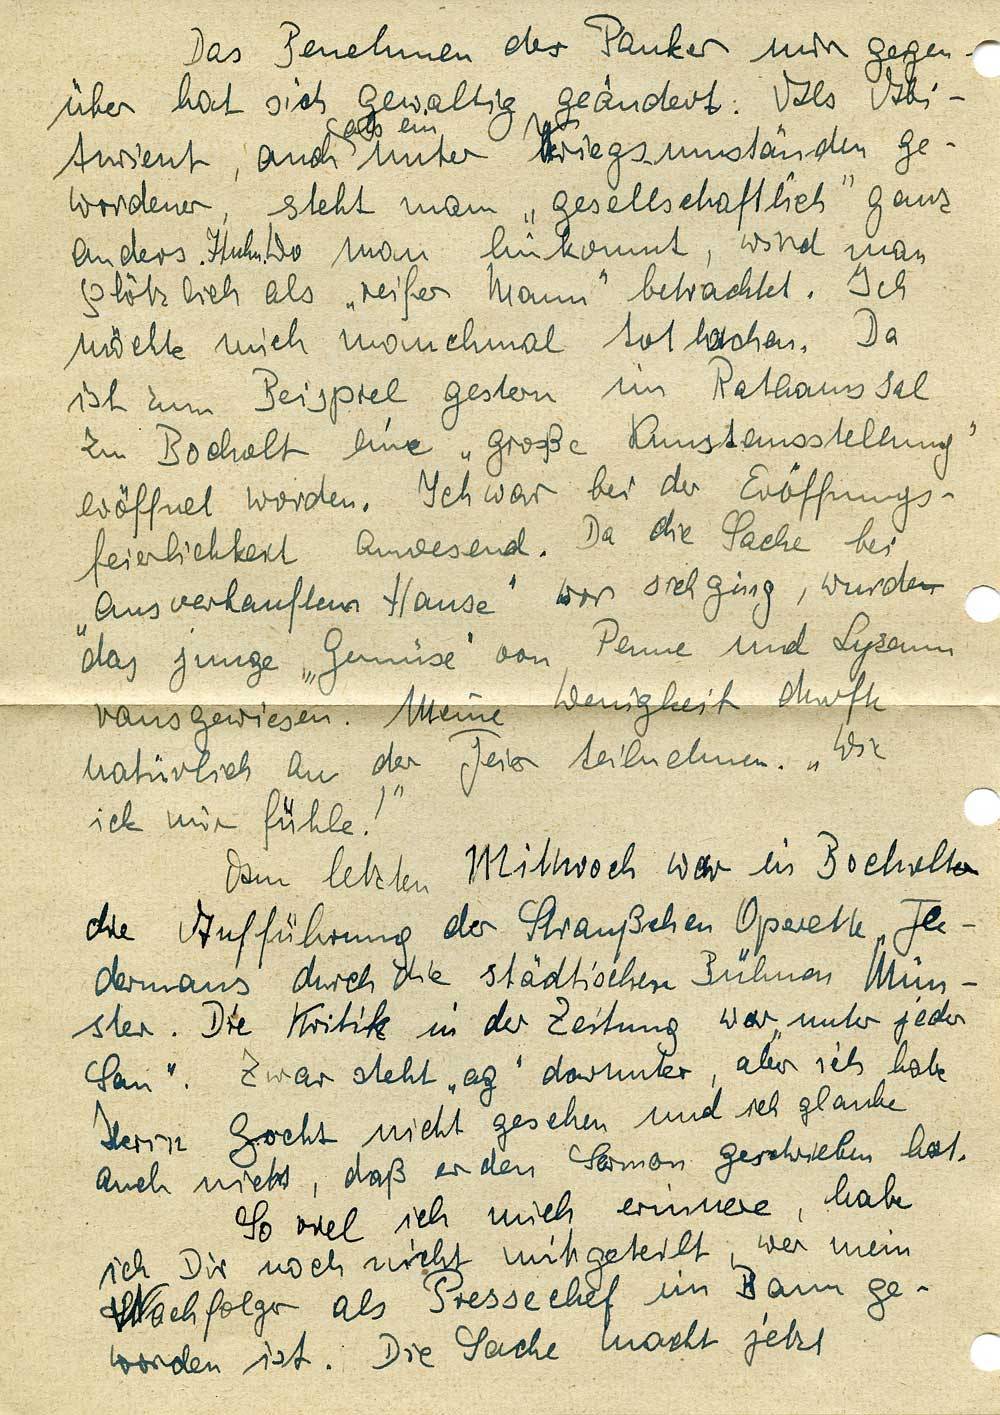 Das Benehmen der Pauker mir gegen-
über hat sich gewaltig geändert. Als Abi-
als ein
turient, auch unter Kriegsumständen ge-
wordener, steht man „gesellschaftlich" ganz
anders. Wo man hinkommt, wird man
plötzlich als „reifer Mann" betrachtet. Ich
möchte mich manchmal tot lachen. Da
ist zum Beispiel gestern im Rathaussaal
zu Bocholt eine „große Kunstausstellung"
eröffnet worden. Ich war bei der Eröffnungs-
feierlichkeit anwesend. Da die Sache bei
„ausverkauftem Hause" vor sich ging, wurden
das junge „Gemüse" von Penne und Lyzeum
rausgewiesen. Meine Wenigkeit durfte
natürlich an der Feier teilnehmen. „Wie
ick mir fühle!"
Am letzten Mittwoch war in Bocholt
die Aufführung der Straußschen Operette „Fle-
dermaus durch die städtischen Bühnen Mün-
ster. Die Kritik in der Zeitung war „unter jeder
Sau". Zwar steht „ag" darunter, aber ich habe
Herrn nicht gesehen und ich glaube
auch nicht, daß er den Sermon geschrieben hat.
So viel ich mich erinnere, habe
ich Dir noch nicht mitgeteilt, wer mein
Nachfolger als Pressechef im Bann ge-
worden ist. Die Sache macht jetzt